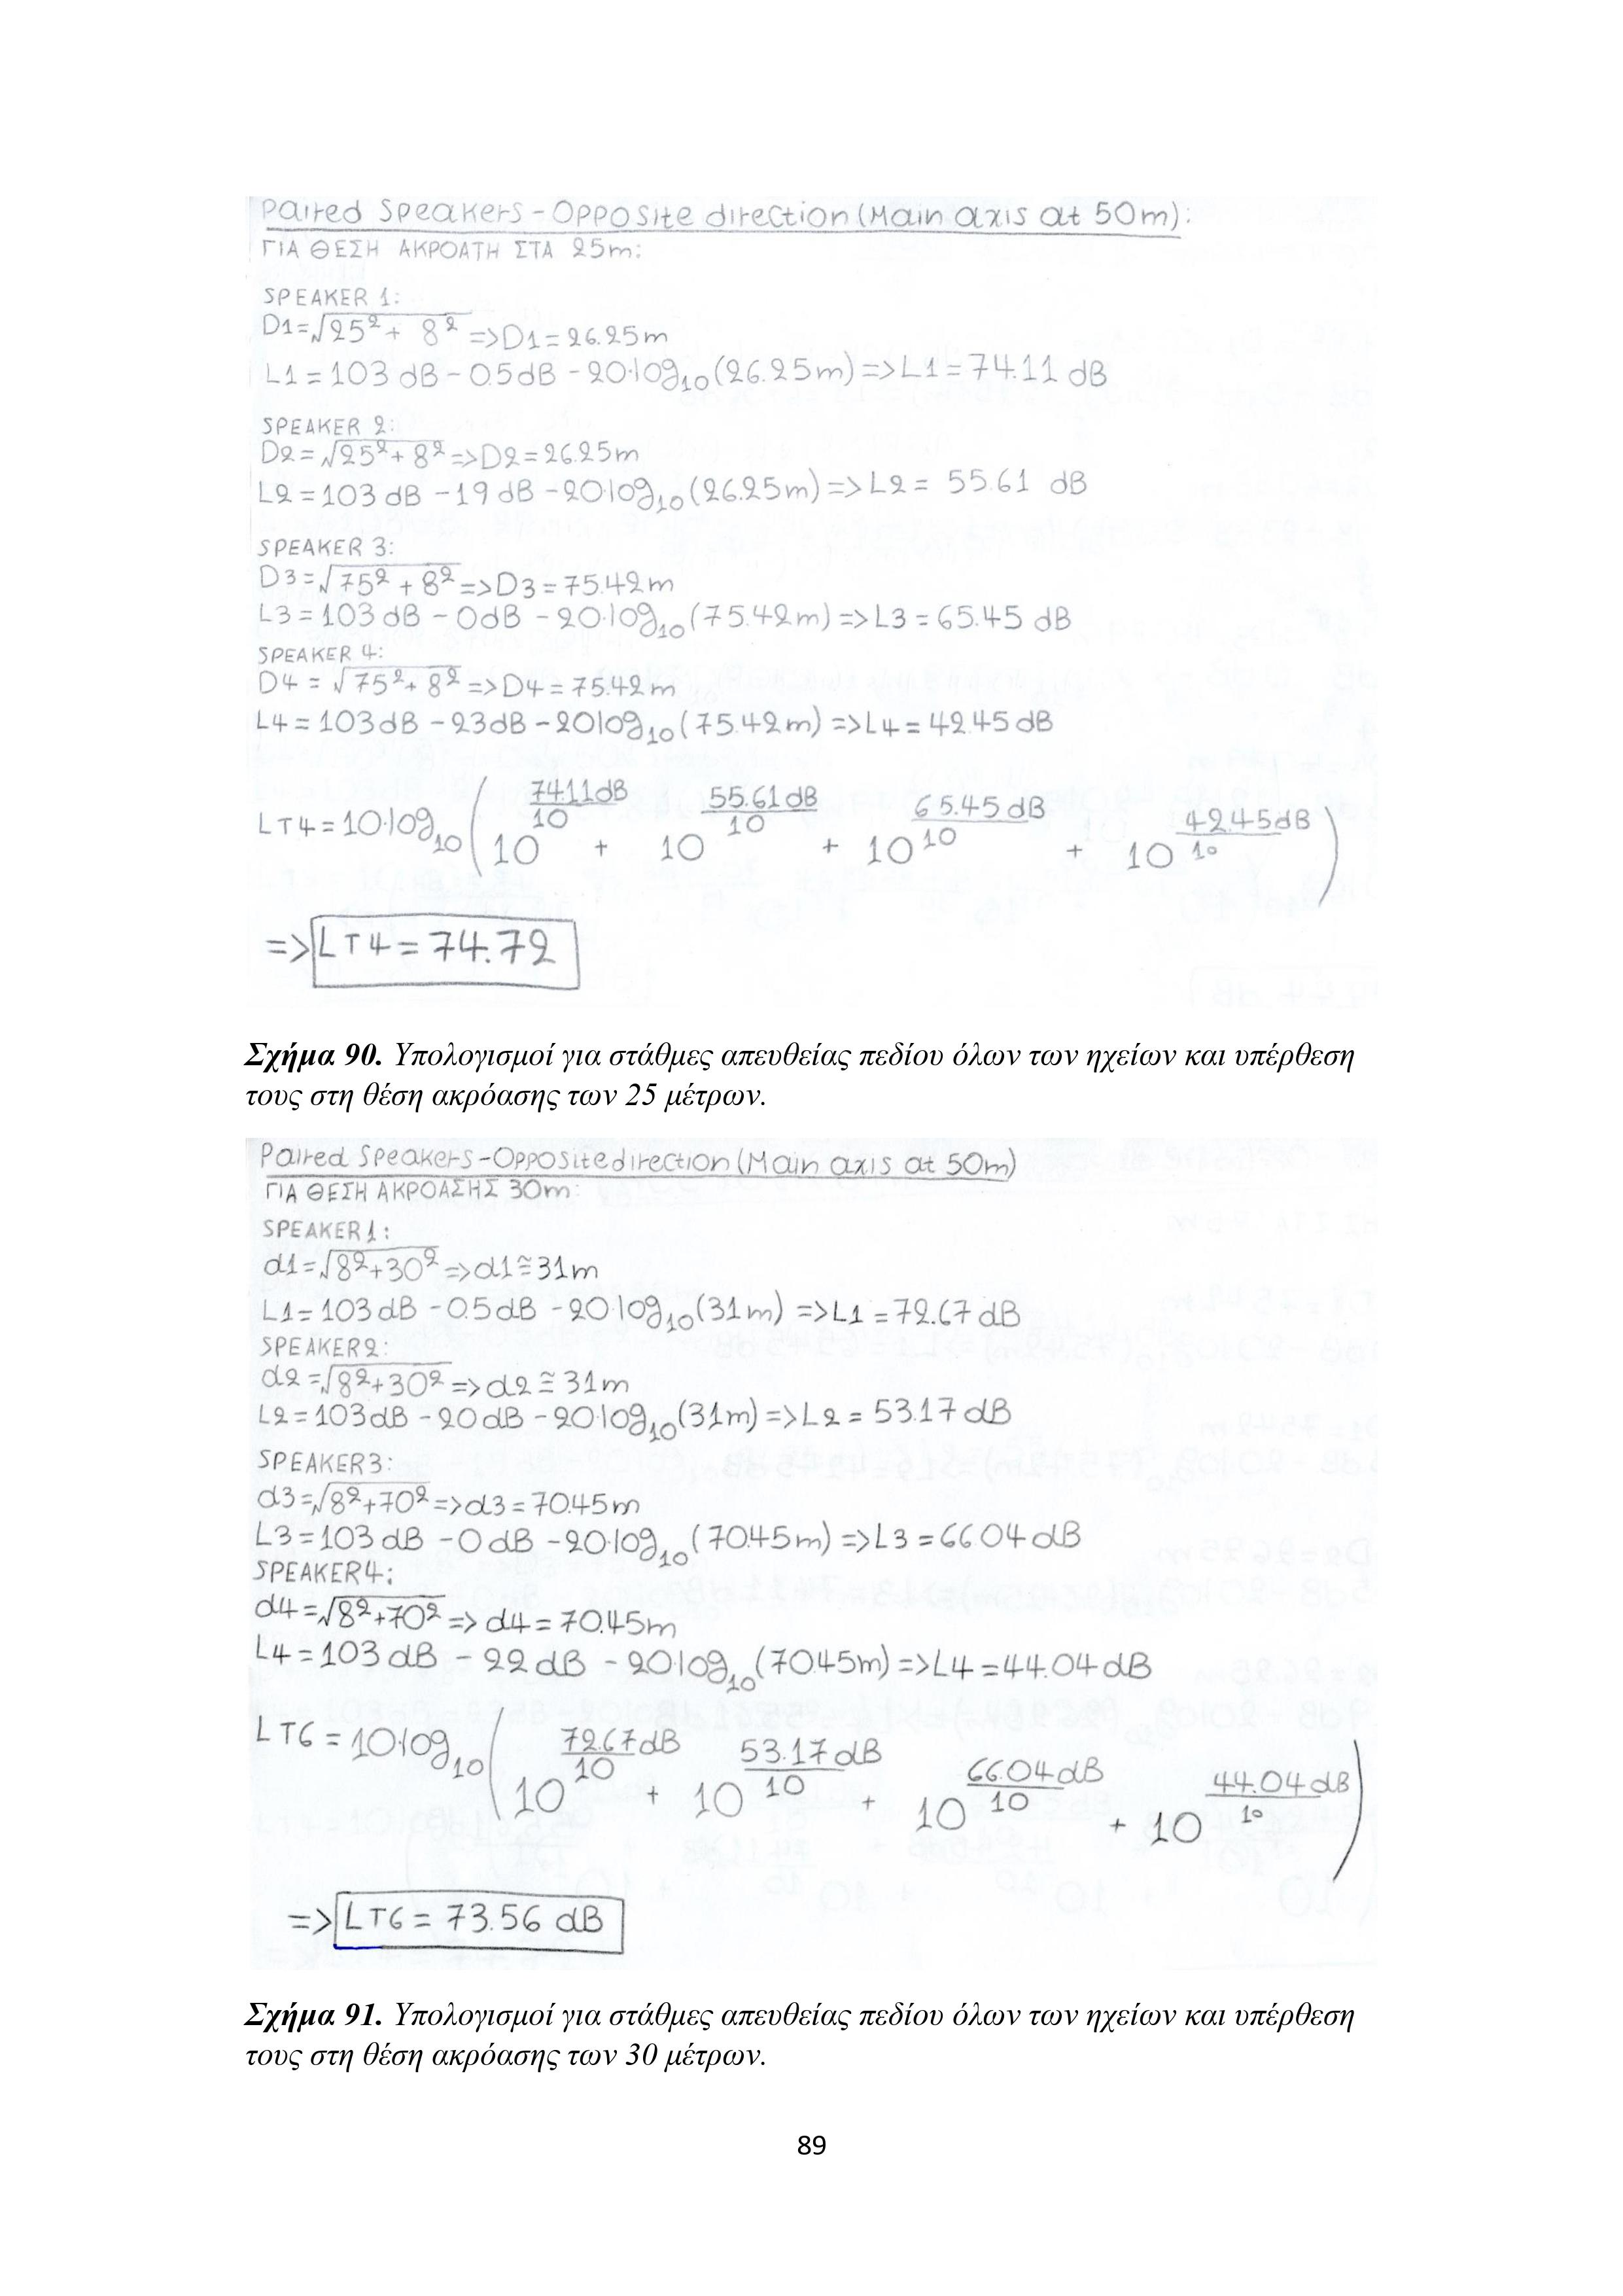 Paired Speakers - Opposite direction (Main axis at 50m):
ΓΙΑ ΘΕΣΗ ΑΚΡΟΑΤΗ ΣΤΑ 25m:
SPEAKER 1:
D1=√25²+ 8² =>D1=26.25m
L1=103 dB - 0.5dB - 20·log10(26.25m)=>L1=74.11 dB
SPEAKER 2:
D2=√25²+8²=>D2=26.25m
L2=103 dB -19 dB -20·log10(26.25m)=>L2= 55.61 dB
SPEAKER 3:
D3=√75²+8²=>D3=75.42m
L3=103 dB - 0dB - 20·log10(75.42m)=>L3=65.45 dB
SPEAKER 4:
D4=√75²+8²=>D4=75.42m
L4=103dB-23dB-20log10(75.42m)=>L4=42.45dB
LT4=10·log10(10^(74.11dB/10) + 10^(55.61dB/10) + 10^(65.45dB/10) + 10^(42.45dB/10))
=>LT4=74.72
Σχήμα 90. Υπολογισμοί για στάθμες απευθείας πεδίου όλων των ηχείων και υπέρθεση
τους στη θέση ακρόασης των 25 μέτρων.
Paired Speakers-Opposite direction (Main axis at 50m)
ΓΙΑ ΘΕΣΗ ΑΚΡΟΑΣΗΣ 30m:
SPEAKER1:
d1=√8²+30²=>d1≅31m
L1=103dB -0.5dB -20·log10(31m) =>L1=72.67 dB
SPEAKER2:
d2=√8²+30²=>d2≅31m
L2=103dB-20dB-20·log10(31m)=>L2=53.17dB
SPEAKER3:
d3=√8²+70²=>d3=70.45m
L3=103dB -0dB -20·log10(70.45m)=>L3=66.04dB
SPEAKER4:
d4=√8²+70²=>d4=70.45m
L4=103dB - 22dB - 20·log10(70.45m)=>L4=44.04dB
LT6=10·log10(10^(72.67dB/10) + 10^(53.17dB/10) + 10^(66.04dB/10) + 10^(44.04dB/10))
=>LT6=73.56 dB
Σχήμα 91. Υπολογισμοί για στάθμες απευθείας πεδίου όλων των ηχείων και υπέρθεση
τους στη θέση ακρόασης των 30 μέτρων.
89